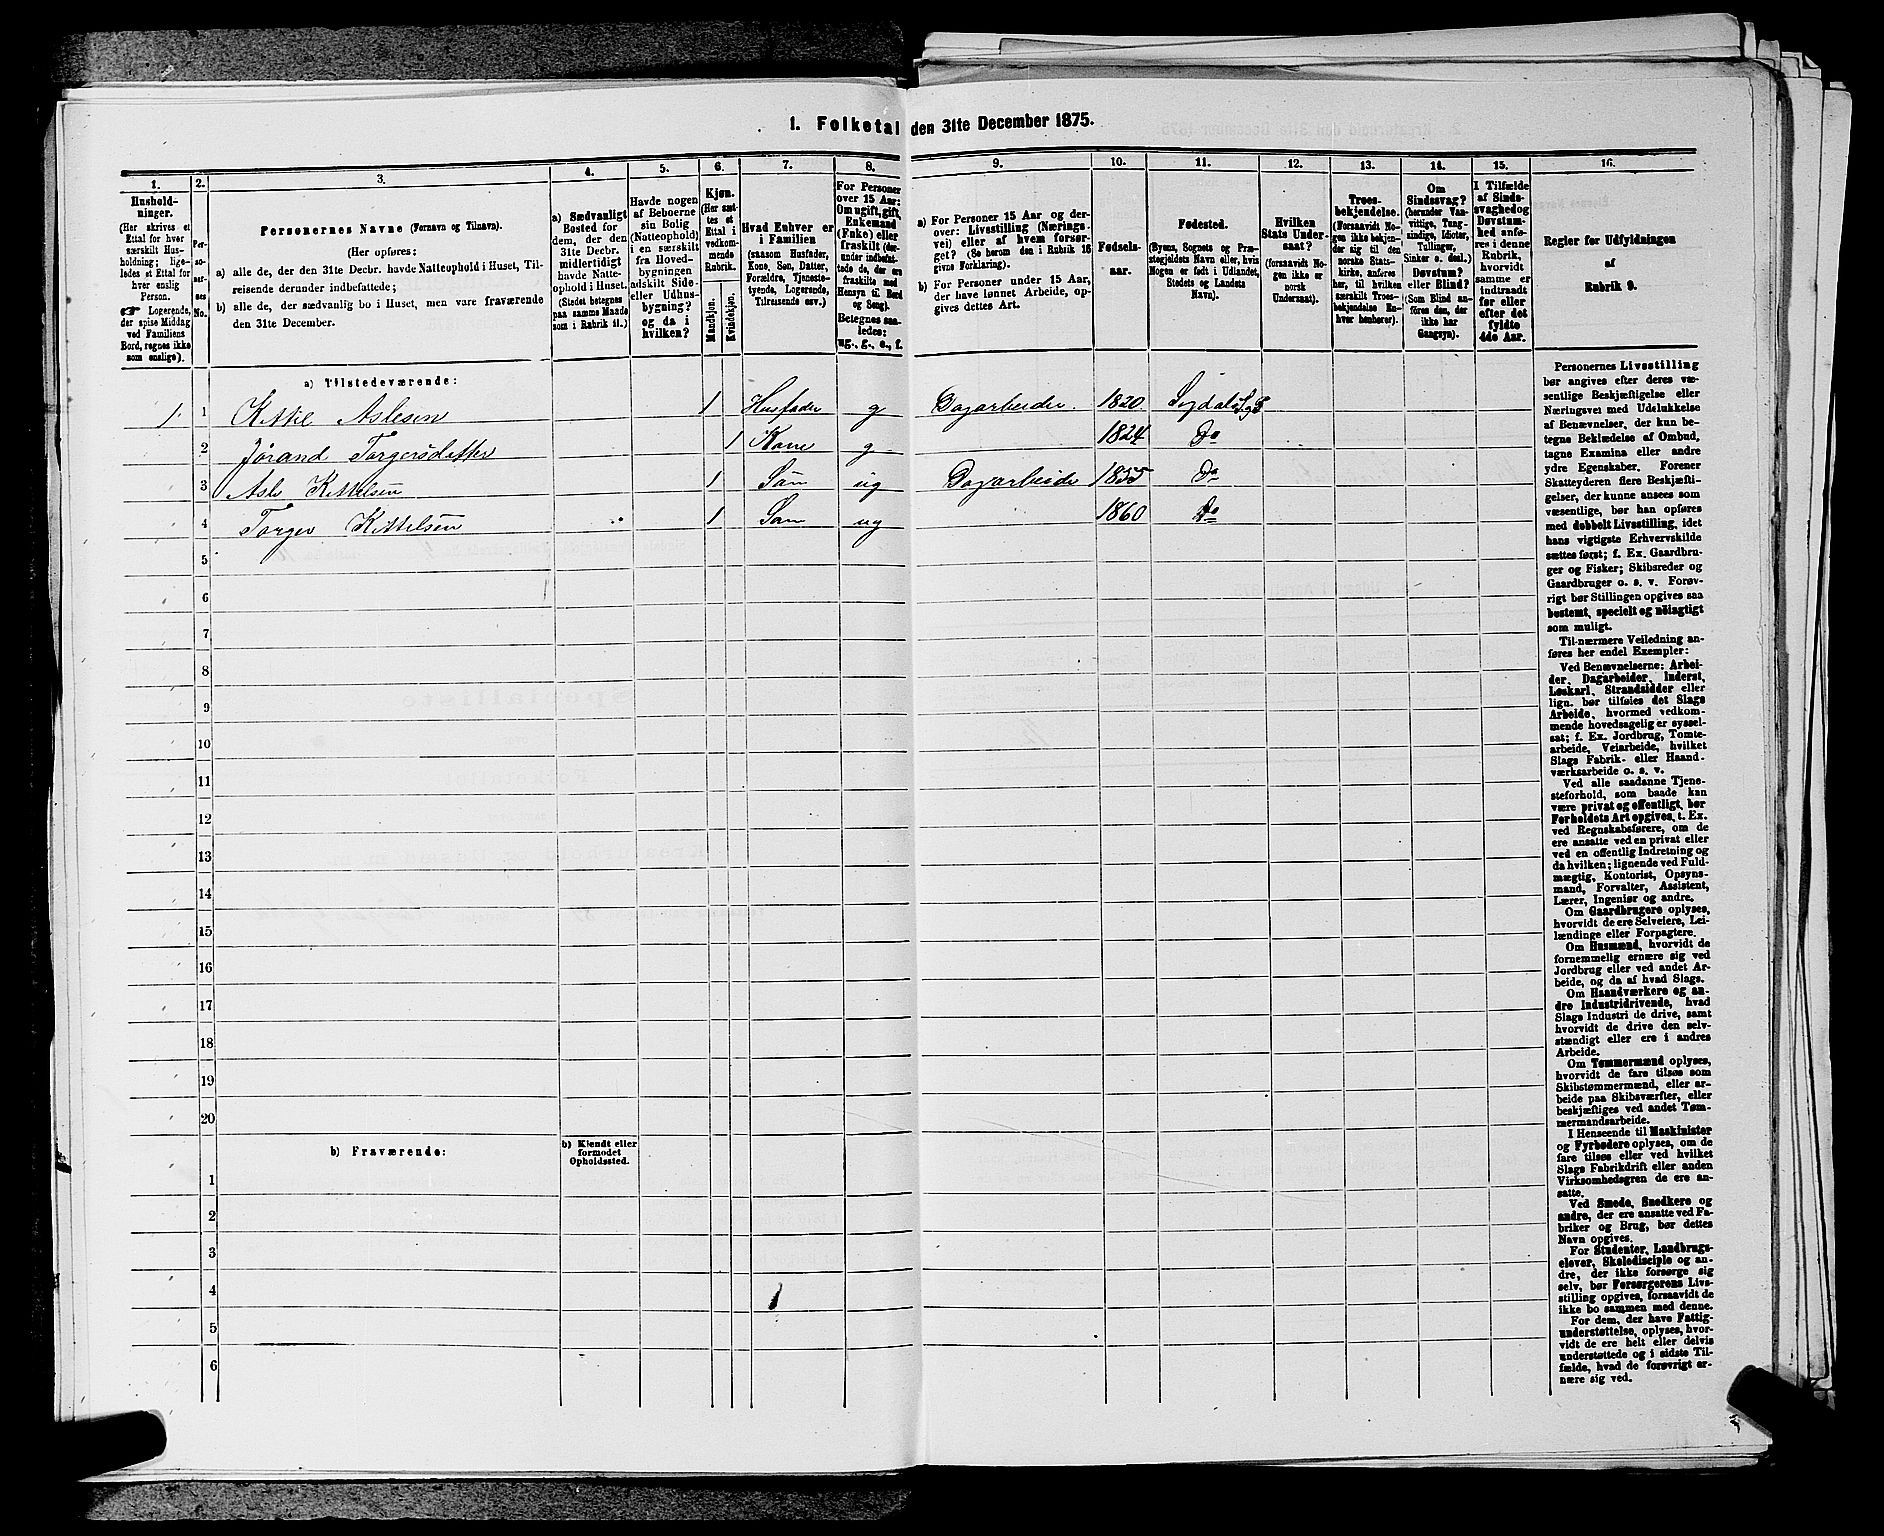 1. Folketal den 31te December 1875.
1. 2. 3. 4. 5. 6. 7. 8. 9. 10. 11. 12. 13. 14. 15. 16.
Hushold-
ninger.
(Her skrives et
Ettal for hver
særskilt Hus-
holdning; lige-
ledes et Ettal for
hver enslig
Person.
☛ Logerende,
der spise Middag
ved Familiens
Bord, regnes ikke
som enslige).
Per-
soner-
nes
No.
Personernes Navne (Fornavn og Tilnavn).
(Her opføres:
a) alle de, der den 31te Decbr. havde Natteophold i Huset, Til-
reisende derunder indbefattede;
b) alle de, der sædvanlig bo i Huset, men vare fraværende
den 31te December.
a) Sædvanligt
Bosted for
dem, der den
31te Decbr.
midlertidigt
havde Natte-
ophold i Huset.
(Stedet betegnes
paa samme Maade
som i Rubrik 11.)
Havde nogen
af Beboerne
sin Bolig
(Natteophold)
i en særskilt
fra Hoved-
bygningen
adskilt Side-
eller Udhus-
bygning?
og da i
hvilken?
Kjøn.
(Her sæt-
tes et
Ettal i
vedkom-
mende
Rubrik.
Mandkjøn.
Kvindekjøn.
Hvad Enhver er
i Familien
(saasom Husfader,
Kone, Søn, Datter,
Forældre, Tjeneste-
tyende, Logerende,
Tilreisende osv.)
For Personer
over 15 Aar:
Om ugift, gift,
Enkemand
(Enke) eller
fraskilt (der-
under indbefat-
tede de, der ere
fraskilte med
Hensyn til Bord
og Seng).
Betegnes saa-
ledes:
ug., g., e., f.
a) For Personer 15 Aar og der-
over: Livsstilling (Nærings-
vei) eller af hvem forsør-
get? (Se herom den i Rubrik 16
givne Forklaring).
b) For Personer under 15 Aar,
der have lønnet Arbeide, op-
gives dettes Art.
Fødsels-
aar.
Fødested.
(Byens, Sognets og Præ-
stegjeldets Navn eller, hvis
Nogen er født i Udlandet,
Stedets og Landets
Navn).
Hvilken
Stats Under-
saat?
(forsaavidt No-
gen ikke er
norsk
Undersaat).
Troes-
bekjendelse.
(Forsaavidt No-
gen ikke bekjen-
der sig til den
norske Stats-
kirke, anføres
her, til hvilken
særskilt Troes-
bekjendelse En-
hver henhører).
Om
Sindssvag?
(herunder Van-
vittige, Tung-
sindige, Idioter,
Tullinger,
Sinker o. desl.)
Døvstum?
eller Blind?
(Som Blind an-
føres den, der
ikke har
Gangsyn).
I Tilfælde
af Sinds-
svaghed og
Døvstum-
hed anfø-
res i denne
Rubrik,
hvorvidt
samme er
indtraadt
før eller
efter det
fyldte
4de Aar.
Regler for Udfyldningen
af
Rubrik 9.
a) Tilstedeværende:
1 1 Kittil Aslesen 1 Husfader g Dagarbeider 1820
2 Jørand Torgersdatter 1 Kone g 1824 Do
3 Asle Kittelsen 1 Søn ug Dagarbeider 1855 Do
4 Torger Kittelsen 1 Søn ug 1860 Do
5
6
7
8
9
10
11
12
13
14
15
16
17
18
19
20
b) Fraværende:
b) Kjendt eller
formodet
Opholdssted.
1
2
3
4
5
6
Personernes Livsstilling
bør angives efter deres væ-
sentlige Beskjæftigelse eller
Næringsvei med Udelukkelse
af Benævnelser, der kun be-
tegne Beklædelse af Ombud,
tagne Examina eller andre
ydre Egenskaber. Forener
Skatteyderen flere Beskjæfti-
gelser, der kunne ansees som
væsentlige, bør han opføres
med dobbelt Livsstilling, idet
hans vigtigste Erhvervskilde
sættes først; f. Ex. Gaardbru-
ger og Fisker; Skibsreder og
Gaardbruger o. s. v. Forøv-
rigt bør Stillingen opgives saa
bestemt, specielt og nøiagtigt
som muligt.
Til nærmere Veiledning an-
føres her endel Exempler:
Ved Benævnelserne: Arbei-
der, Dagarbeider, Inderst,
Løskarl, Strandsidder eller
lign. bør tilføies det Slags
Arbeide, hvormed vedkom-
mende hovedsagelig er syssel-
sat; f. Ex. Jordbrug, Tomte-
arbeide, Veiarbeide, hvilket
Slags Fabrik- eller Haand-
værksarbeide o. s. v.
Ved alle saadanne Tjene-
steforhold, som baade kan
være privat og offentligt, bør
Forholdets Art opgives, t. Ex.
ved Regnskabsførere, om de
ere ansatte ved en privat eller
ved en offentlig Indretning og
da hvilken; lignende ved Fuld-
mægtig, Kontorist, Opsyns-
mand, Forvalter, Assistent,
Lærer, Ingeniør og andre.
Om Gaardbrugere oplyses,
hvorvidt de ere Selveiere, Lei-
lændinge eller Forpagtere.
Om Husmænd, hvorvidt de
fornemmelig ernære sig ved
Jordbrug eller ved andet Ar-
beide, og da af hvad Slags.
Om Haandværkere og an-
dre Industridrivende, hvad
Slags Industri de drive, samt
hvorvidt de drive den selv-
stændigt eller ere i andres
Arbeide.
Om Tømmermænd oplyses,
hvorvidt de fare tilsøs som
Skibstømmermænd, eller ar-
beide paa Skibsværfter, eller
beskjæftiges ved andet Tøm-
mermandsarbeide.
I Henseende til Maskinister
og Fyrbødere oplyses, om de
fare tilsøs eller ved hvilket
Slags Fabrikdrift eller anden
Virksomhedsgren de ere an-
satte.
Ved Smede, Snedkere og
andre, der ere ansatte ved Fa-
briker og Brug, bør dettes
Navn opgives.
For Studenter, Landbrugs-
elever, Skoledisciple og an-
dre, der ikke forsørge sig
selv, bør Forsørgerens Livs-
stilling opgives, forsaavidt de
ikke bo sammen med denne.
For dem, der have Fattig-
understøttelse, oplyses, hvor-
vidt de ere helt eller delvis
understøttede og i sidste Til-
fælde, hvad de forøvrigt er-
nære sig ved.